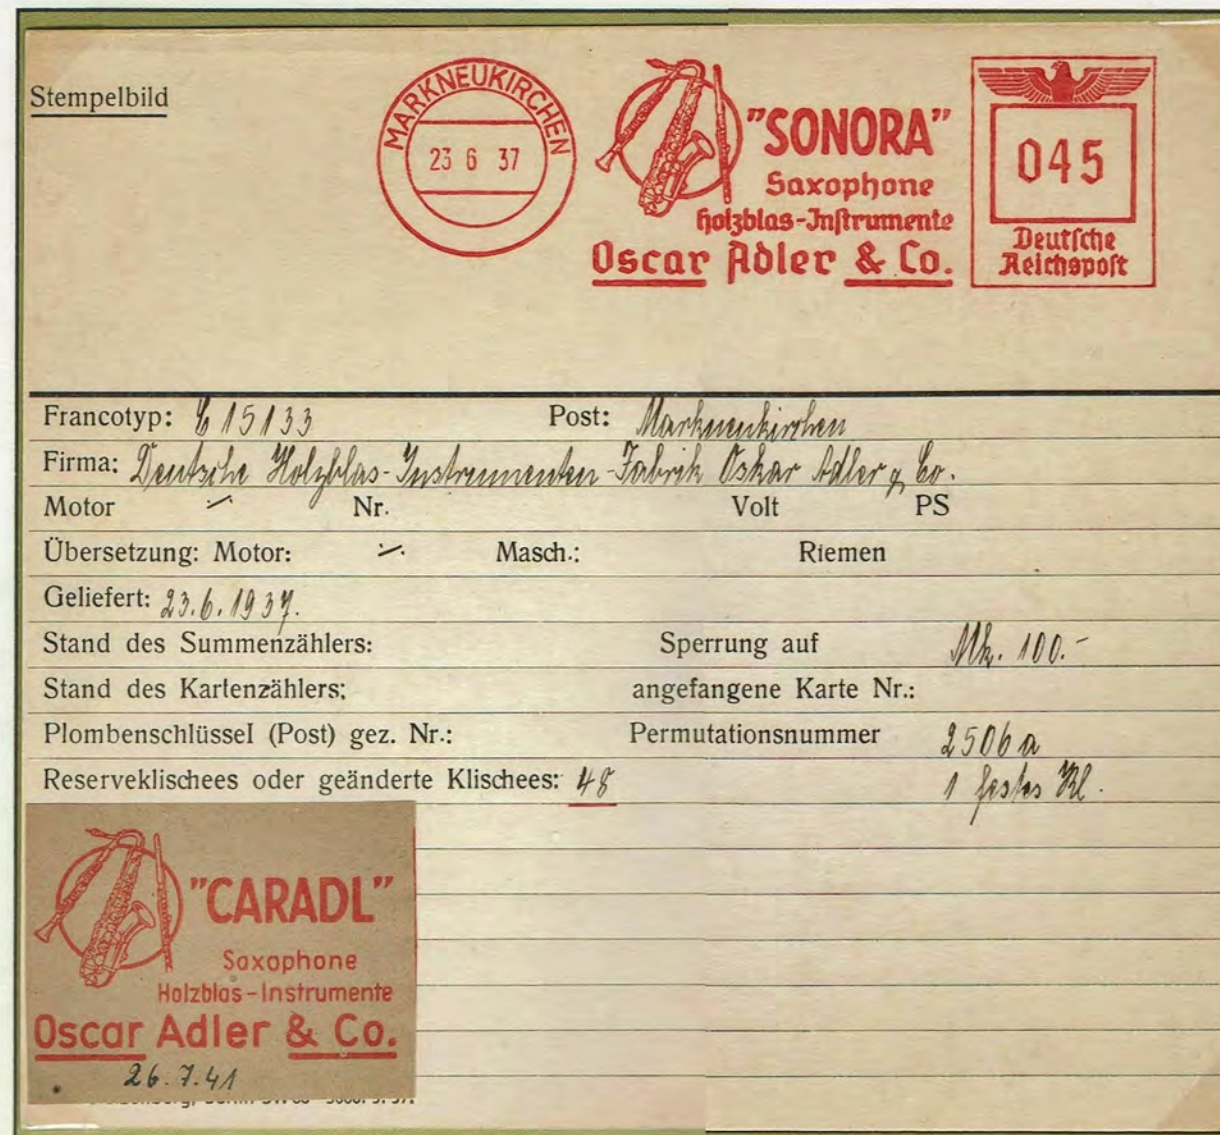 Stempelbild
MARKNEUKIRCHEN
23 6 37
"SONORA"
Saxophone
Holzblas-Instrumente
Oscar Adler & Co.
045
Deutsche
Reichspost
Francotyp: C 15133 Post: Markneukirchen
Firma: Deutsche Holzblas-Instrumenten-Fabrik Oskar Adler & Co.
Motor Nr. Volt PS
Übersetzung: Motor: Masch.: Riemen
Geliefert: 23.6.1937.
Stand des Summenzählers: Sperrung auf Mk. 100.-
Stand des Kartenzählers: angefangene Karte Nr.:
Plombenschlüssel (Post) gez. Nr.: Permutationsnummer 2506 a
Reserveklischees oder geänderte Klischees: 48 1 festes Kl.
"CARADL"
Saxophone
Holzblas-Instrumente
Oscar Adler & Co.
26.7.41